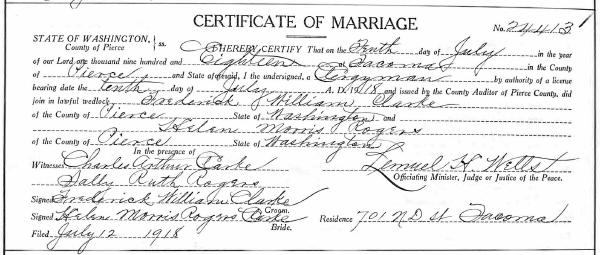 CERTIFICATE OF MARRIAGE
No. 24413
STATE OF WASHINGTON,
County of Pierce
ss.
I HEREBY CERTIFY That on the Tenth day of July in the year
of our Lord one thousand nine hundred and Eighteen at Tacoma in the County
of Pierce and State of aforesaid, I the undersigned, a Clergyman by authority of a license
bearing date the tenth day of July A. D. 1918 and issued by the County Auditor of Pierce County, did
join in lawful wedlock Frederick William Clarke
of the County of Pierce State of Washington and
Helen Morris Rogers
of the County of Pierce State of Washington
In the presence of
Witnesses Charles Arthur Clarke
Sally Ruth Rogers
Lemuel H. Wells
Officiating Minister, Judge or Justice of the Peace.
Signed Frederick William Clarke
Groom.
Signed Helen Morris Rogers Clarke
Bride.
Residence 701 N D st Tacoma
Filed July 12 1918